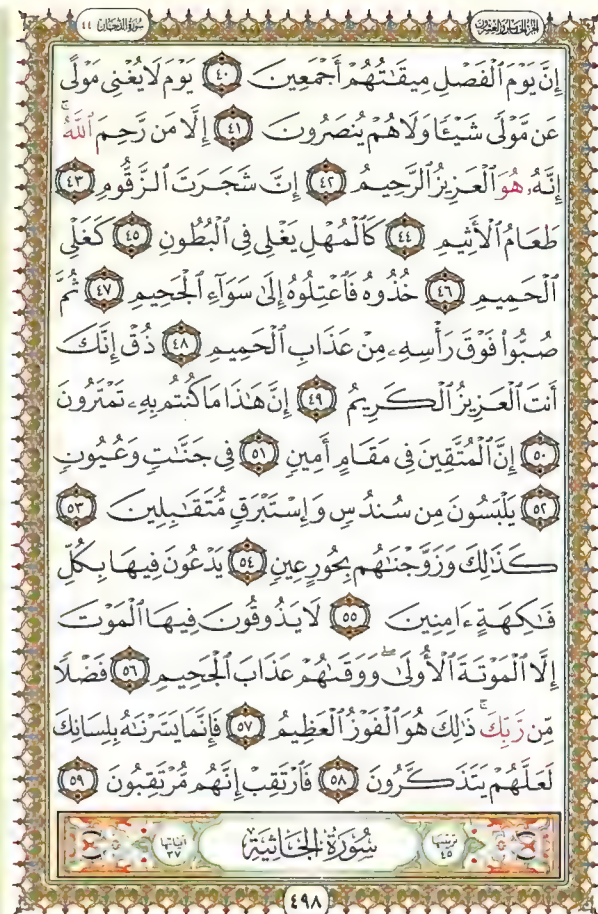 سُورَةُ الدُّخَانِ ٤٤
الجُزءُ الخَامِسُ وَالعِشْرُونَ
إِنَّ يَوْمَ ٱلْفَصْلِ مِيقَٰتُهُمْ أَجْمَعِينَ ٤٠ يَوْمَ لَا يُغْنِى مَوْلًى
عَن مَّوْلًى شَيْـًٔا وَلَا هُمْ يُنصَرُونَ ٤١ إِلَّا مَن رَّحِمَ ٱللَّهُ ۚ
إِنَّهُۥ هُوَ ٱلْعَزِيزُ ٱلرَّحِيمُ ٤٢ إِنَّ شَجَرَتَ ٱلزَّقُّومِ ٤٣
طَعَامُ ٱلْأَثِيمِ ٤٤ كَٱلْمُهْلِ يَغْلِى فِى ٱلْبُطُونِ ٤٥ كَغَلْىِ
ٱلْحَمِيمِ ٤٦ خُذُوهُ فَٱعْتِلُوهُ إِلَىٰ سَوَآءِ ٱلْجَحِيمِ ٤٧ ثُمَّ
صُبُّوا۟ فَوْقَ رَأْسِهِۦ مِنْ عَذَابِ ٱلْحَمِيمِ ٤٨ ذُقْ إِنَّكَ
أَنتَ ٱلْعَزِيزُ ٱلْكَرِيمُ ٤٩ إِنَّ هَٰذَا مَا كُنتُم بِهِۦ تَمْتَرُونَ
٥٠ إِنَّ ٱلْمُتَّقِينَ فِى مَقَامٍ أَمِينٍ ٥١ فِى جَنَّٰتٍ وَعُيُونٍ
٥٢ يَلْبَسُونَ مِن سُندُسٍ وَإِسْتَبْرَقٍ مُّتَقَٰبِلِينَ ٥٣
كَذَٰلِكَ وَزَوَّجْنَٰهُم بِحُورٍ عِينٍ ٥٤ يَدْعُونَ فِيهَا بِكُلِّ
فَٰكِهَةٍ ءَامِنِينَ ٥٥ لَا يَذُوقُونَ فِيهَا ٱلْمَوْتَ
إِلَّا ٱلْمَوْتَةَ ٱلْأُولَىٰ ۖ وَوَقَىٰهُمْ عَذَابَ ٱلْجَحِيمِ ٥٦ فَضْلًا
مِّن رَّبِّكَ ۚ ذَٰلِكَ هُوَ ٱلْفَوْزُ ٱلْعَظِيمُ ٥٧ فَإِنَّمَا يَسَّرْنَٰهُ بِلِسَانِكَ
لَعَلَّهُمْ يَتَذَكَّرُونَ ٥٨ فَٱرْتَقِبْ إِنَّهُم مُّرْتَقِبُونَ ٥٩
ترتيبها ٤٥ سُورَةُ الجَاثِيَةِ آياتها ٣٧
٤٩٨